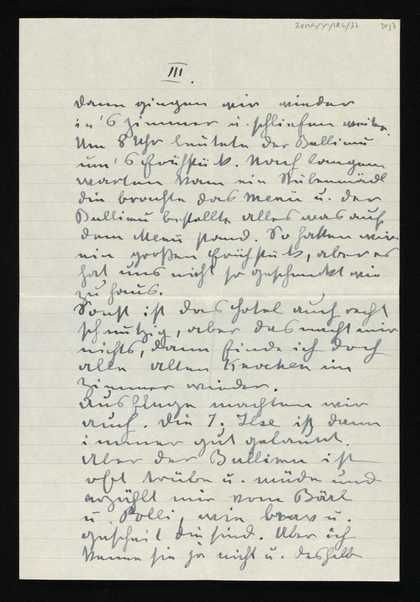 III.
dann gingen wir wieder
in's Zimmer u. schliefen weiter.
Um 8 Uhr leutete der Bullimu
um's Früstük. Nach langem
warten kam ein Stubenmädl
die brachte das Menü u. der
Bullimu bestellte alles was auf
dem Menü stand. So hatten wir
ein großen Früstük, aber es
hat uns nicht so geschmekt wie
zu haus.
Sonst ist das Hotel auch recht
schmutzig, aber das macht mir
nichts, dann finde ich doch
alle alten Brocken im
Zimmer wieder.
Ausflüge machten wir
auch. Die T. Ilse ist dann
immer gut gelaunt.
Aber der Bullimu ist
oft trübe u. müde und
erzählt mir vom Bärl
u. Polli, wie brav u
gescheit die sind. Aber ich
kenne sie ja nicht u. deshalb